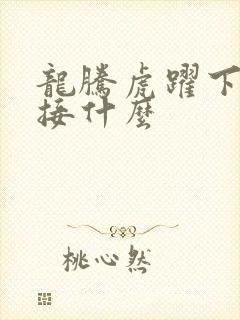 龍騰虎躍下
接什麼
桃心然